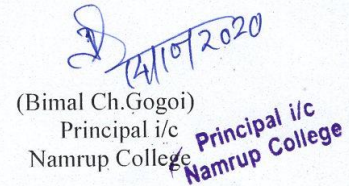 14/10/2020
(Bimal Ch.Gogoi)
Principal i/c
Namrup College
Principal i/c
Namrup College